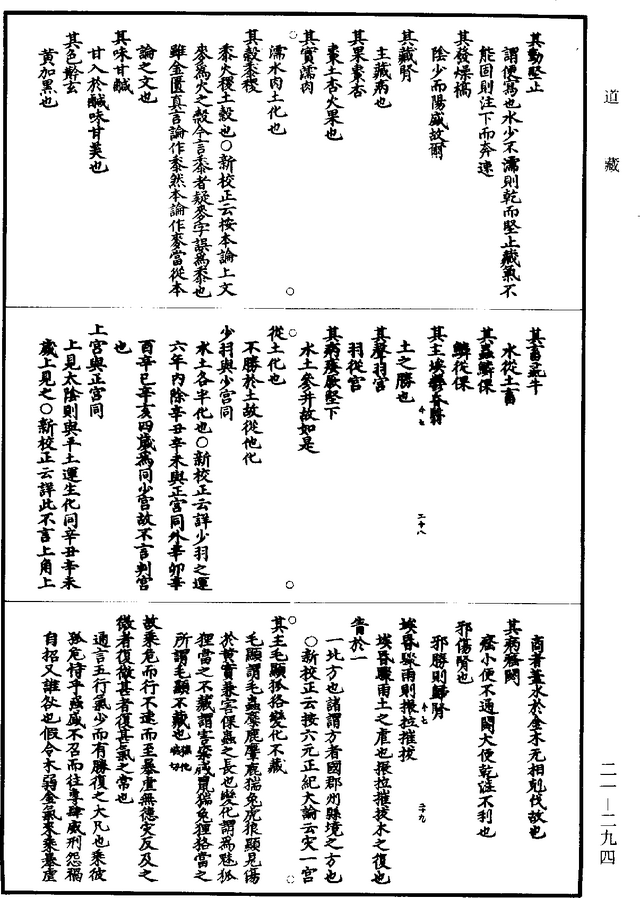 道藏
其動堅止
謂便寫也水少不濡則乾而堅止藏氣不
能固則注下而奔速
其發燥槁
陰少而陽盛故爾
其藏腎
主藏病也
其果棗杏
棗土杏火果也
其實濡肉
濡水肉土化也
其穀黍稷
黍火稷土穀也○新校正云按本論上文
麥為火之穀今言黍者疑麥字誤為黍也
雖金匱真言論作黍然本論作麥當從本
論之文也
其味甘鹹
甘入於鹹味甘美也
其色黅玄
黃加黑也
其畜彘牛
水從土畜
其蟲鱗倮
鱗從倮
其主埃鬱昏翳
土之勝也
其聲羽宮
羽從宮
其病痿厥堅下
水土參并故如是
從土化也
不勝於土故從他化
少羽與少宮同
水土各半化也○新校正云詳少羽之運
六年內除辛丑辛未與正宮同外辛卯辛
酉辛巳辛亥四歲為同少宮故不言判宮
也
上宮與正宮同
上見太陰則與平土運生化同辛丑辛未
歲上見之○新校正云詳此不言上角上
商者蓋水於金木无相剋伐故也
其病癃閟
癃小便不通閟大便乾澁不利也
邪傷腎也
邪勝則歸腎
埃昏驟雨則振拉摧拔
埃昏驟雨土之虐也振拉摧拔木之復也
眚於一
一北方也諸謂方者國郡州縣境之方也
○新校正云按六元正紀大論云灾一宮
其主毛顯狐狢變化不藏
毛顯謂毛蟲麋鹿麞麂猯兔虎狼顯見傷
於黃實兼害倮蟲之長也變化謂為魅狐
狸當之不藏謂害粢盛鼠猯兔狸狢當之
所謂毛顯不藏也
故乘危而行不速而至暴虐無德灾反及之
微者復微甚者復甚氣之常也
通言五行氣少而有勝復之大凡也乘彼
孤危恃乎強盛不召而往專肆威刑怨禍
自招又誰咎也假令木弱金氣來乘暴虐
二一—二九四